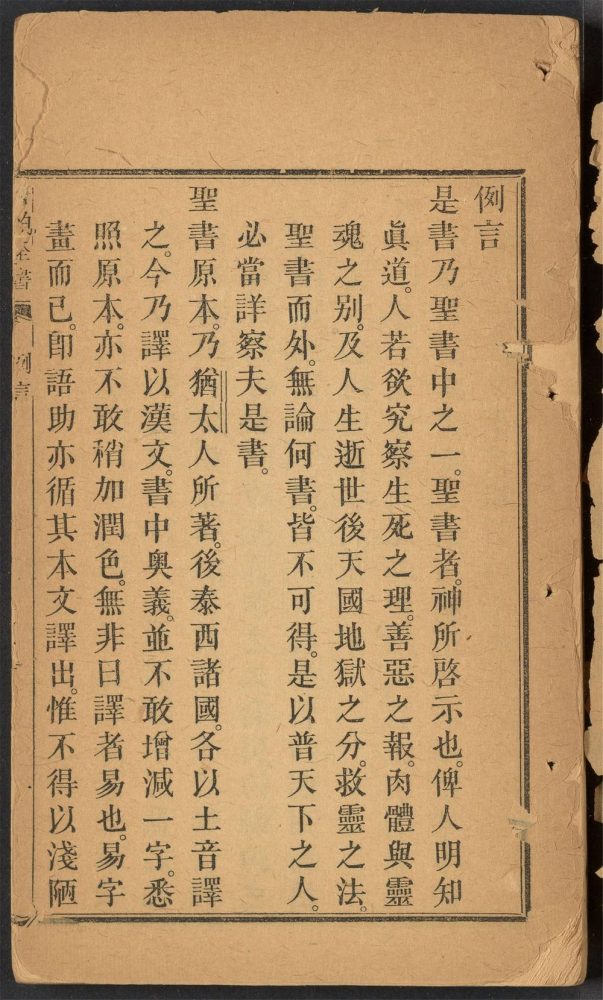 例言
是書乃聖書中之一。聖書者。神所啓示也。俾人明知
眞道。人若欲究察生死之理。善惡之報。肉體與靈
魂之别。及人生逝世後天國地獄之分。救靈之法。
聖書而外。無論何書。皆不可得。是以普天下之人。
必當詳察夫是書。
聖書原本。乃猶太人所著。後泰西諸國。各以土音譯
之。今乃譯以漢文。書中奧義。並不敢增減一字。悉
照原本。亦不敢稍加潤色。無非曰譯者易也。易字
畫而已。卽語助亦循其本文譯出。惟不得以淺陋
聖書 例言